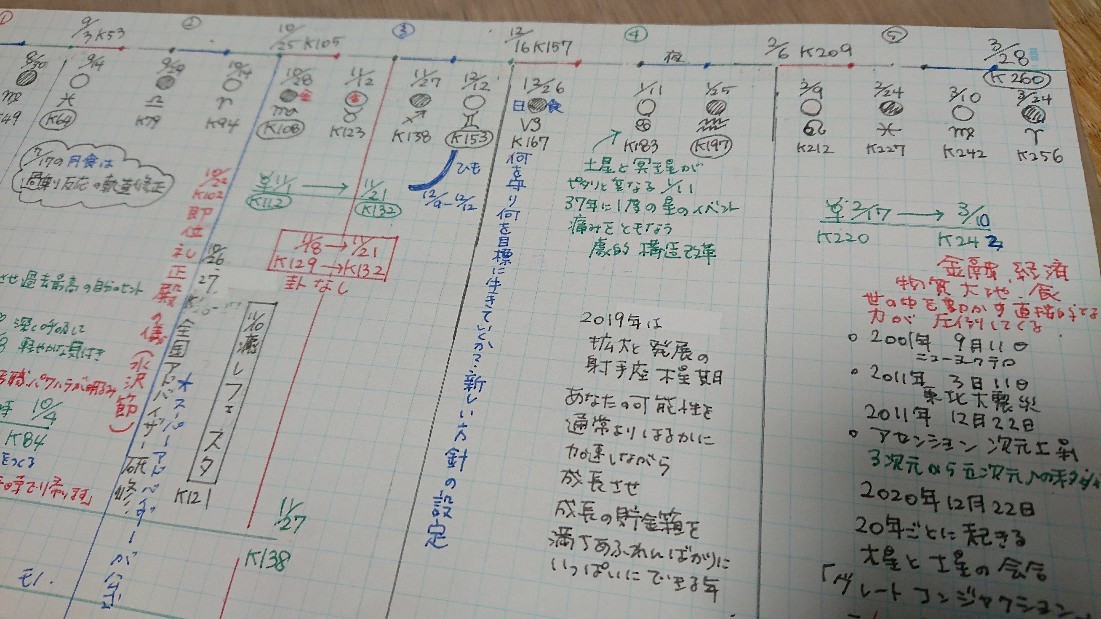 ①
9/3 K53
②
10/25 K105
③
12/16 K157
④
夜
2/6 K209
⑤
3/28
K260
8/30
9/14
9/29
10/14
10/28
11/12
11/27
12/12
12/26
1/11
1/25
3/9
3/24
3/10
3/24
日食
K49
K64
K79
K94
K108
K123
K138
K153
K167
K183
K197
K212
K227
K242
K256
7/17の月食は
過剰反応の軌道修正
10/22
K102
即位礼正殿の儀(水沢節)
10/26
27
全国アドバイザー研修
スーパーアドバイザーが
11/10 癒しフェスタ
K121
11/1 → 11/21
K112 K132
11/8 → 11/21
K129 → K132
卦なし
ひも
12/9-12/12
何を守り何を目標に生きていくか?新しい方針の設定
土星と冥王星が
ピタリと重なる 1/11
37年に1度の星のイベント
痛みをともなう
劇的 構造改革
2/17 → 3/10
K220 K242
金融、経済
物質大地、食
世の中を動かす直接的な
力が圧倒してくる
2019年は
拡大と発展の
射手座 木星期
あなたの可能性を
通常よりはるかに
加速しながら
成長させ
成長の貯金箱を
満ちあふれんばかりに
いっぱいにできる年
○ 2001年 9月11日
ニューヨークテロ
○ 2011年 3月11日
東北大震災
2011年 12月22日
○ アセンション 次元上昇
3次元から5次元への
2020年12月22日
20年ごとに起きる
木星と土星の会合
「グレートコンジャクション
せ過去最高の自分のセット
軽やかな
パワハラが明るみ
10/4
K84
をつくる
11/27
K138
モノ.